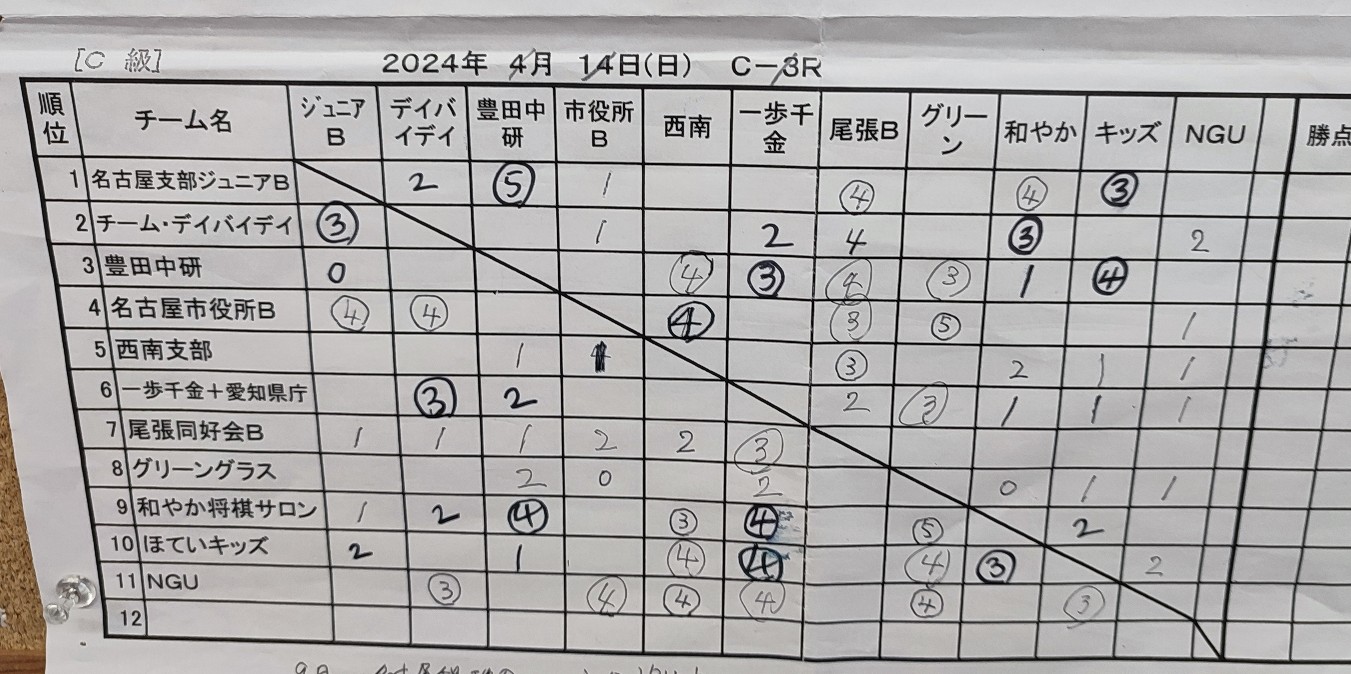 [C 級] 2024年 4月 14日(日) C-3R
順位 チーム名 ジュニアB デイバイデイ 豊田中研 市役所B 西南 一歩千金 尾張B グリーン 和やか キッズ NGU 勝点
1 名古屋支部ジュニアB 2 ⑤ 1 ④ ④ ③
2 チーム・デイバイデイ ③ 1 2 4 ③ 2
3 豊田中研 0 ④ ③ ④ ③ 1 ④
4 名古屋市役所B ④ ④ ④ ③ ⑤ 1
5 西南支部 1 1 ③ 2 1 1
6 一歩千金+愛知県庁 ③ 2 2 ③ 1 1 1
7 尾張同好会B 1 1 1 2 2 ③
8 グリーングラス 2 0 2 0 1 1
9 和やか将棋サロン 1 2 ④ ③ ④ ⑤ 2
10 ほていキッズ 2 1 ④ ④ ④ ③ 2
11 NGU ③ ④ ④ ④ ④ ③
12